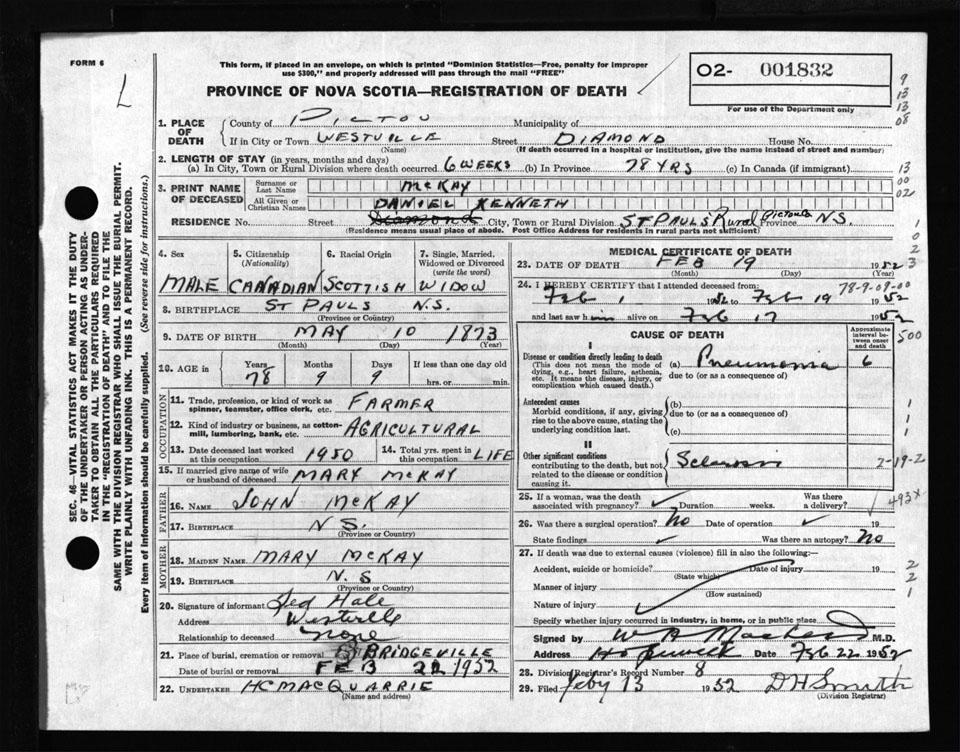 FORM 6
This form, if placed in an envelope, on which is printed "Dominion Statistics—Free, penalty for improper
use $300," and properly addressed will pass through the mail "FREE"
PROVINCE OF NOVA SCOTIA—REGISTRATION OF DEATH
02- 001832
For use of the Department only
9
13
13
08
L
1. PLACE OF DEATH
County of PICTOU Municipality of
If in City or Town WESTVILLE Street DIAMOND House No.
(Name) (If death occurred in a hospital or institution, give the name instead of street and number)
2. LENGTH OF STAY (in years, months and days)
(a) In City, Town or Rural Division where death occurred 6 WEEKS (b) In Province 78 YRS (c) In Canada (if immigrant)
13
00
02
3. PRINT NAME OF DECEASED
Surname or Last Name MCKAY
All Given or Christian Names DANIEL KENNETH
RESIDENCE No. Street City, Town or Rural Division ST PAULS Rural Pictou Co Province N.S.
(Residence means usual place of abode. Post Office Address for residents in rural parts not sufficient)
1
0
2
3
4. Sex MALE
5. Citizenship (Nationality) CANADIAN
6. Racial Origin SCOTTISH
7. Single, Married, Widowed or Divorced (write the word) WIDOW
8. BIRTHPLACE ST PAULS N.S.
(Province or Country)
9. DATE OF BIRTH MAY 10 1873
(Month) (Day) (Year)
10. AGE in Years 78 Months 9 Days 9 If less than one day old
hrs. or min.
OCCUPATION
11. Trade, profession, or kind of work as spinner, teamster, office clerk, etc. FARMER
12. Kind of industry or business, as cotton-mill, lumbering, bank, etc. AGRICULTURAL
13. Date deceased last worked at this occupation 1950
14. Total yrs. spent in this occupation LIFE
15. If married give name of wife or husband of deceased MARY MCKAY
FATHER
16. NAME JOHN MCKAY
17. BIRTHPLACE N.S.
(Province or Country)
MOTHER
18. MAIDEN NAME MARY MCKAY
19. BIRTHPLACE N.S
(Province or Country)
20. Signature of informant Ted Hale
Address Westville
Relationship to deceased none
21. Place of burial, cremation or removal BRIDGEVILLE
Date of burial or removal FEB 22 1952
22. UNDERTAKER H C MACQUARRIE
(Name and address)
MEDICAL CERTIFICATE OF DEATH
23. DATE OF DEATH FEB 19 1952
(Month) (Day)
78-9-09-00
24. I HEREBY CERTIFY that I attended deceased from:
Feb 1 1952 to Feb 19 1952
and last saw him alive on Feb 17 1952
CAUSE OF DEATH
Approximate interval between onset and death
500
I
Disease or condition directly leading to death (a) Pneumonia 6
(This does not mean the mode of dying, e.g., heart failure, asthenia, etc. It means the disease, injury, or complication which caused death.)
due to (or as a consequence of)
Antecedent causes (b)
Morbid conditions, if any, giving rise to the above cause, stating the underlying condition last.
due to (or as a consequence of)
(c)
1
1
1
II
Other significant conditions
contributing to the death, but not related to the disease or condition causing it.
2-19-2
493x
25. If a woman, was the death associated with pregnancy? Duration weeks. Was there a delivery?
26. Was there a surgical operation? No Date of operation 19
State findings Was there an autopsy? No
27. If death was due to external causes (violence) fill in also the following:—
Accident, suicide or homicide? Date of injury 19
(State which)
Manner of injury
(How sustained)
Nature of injury
2
2
1
Specify whether injury occurred in industry, in home, or in public place
Signed by M.D.
Address Hopewell Date Feb 22 1952
28. Division Registrar's Record Number 8
29. Filed Feby 13 1952 D H Smith
(Division Registrar)
SEC. 46—VITAL STATISTICS ACT MAKES IT THE DUTY
OF THE UNDERTAKER OR PERSON ACTING AS UNDER-
TAKER TO OBTAIN ALL THE PARTICULARS REQUIRED
IN THE "REGISTRATION OF DEATH" AND TO FILE THE
SAME WITH THE DIVISION REGISTRAR WHO SHALL ISSUE THE BURIAL PERMIT.
WRITE PLAINLY WITH UNFADING INK. THIS IS A PERMANENT RECORD.
Every item of information should be carefully supplied. (See reverse side for instructions.)